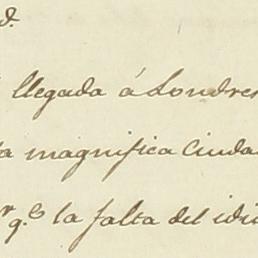 d.
llegada á Londres
magnifica Ciuda
r q.s la falta del idi